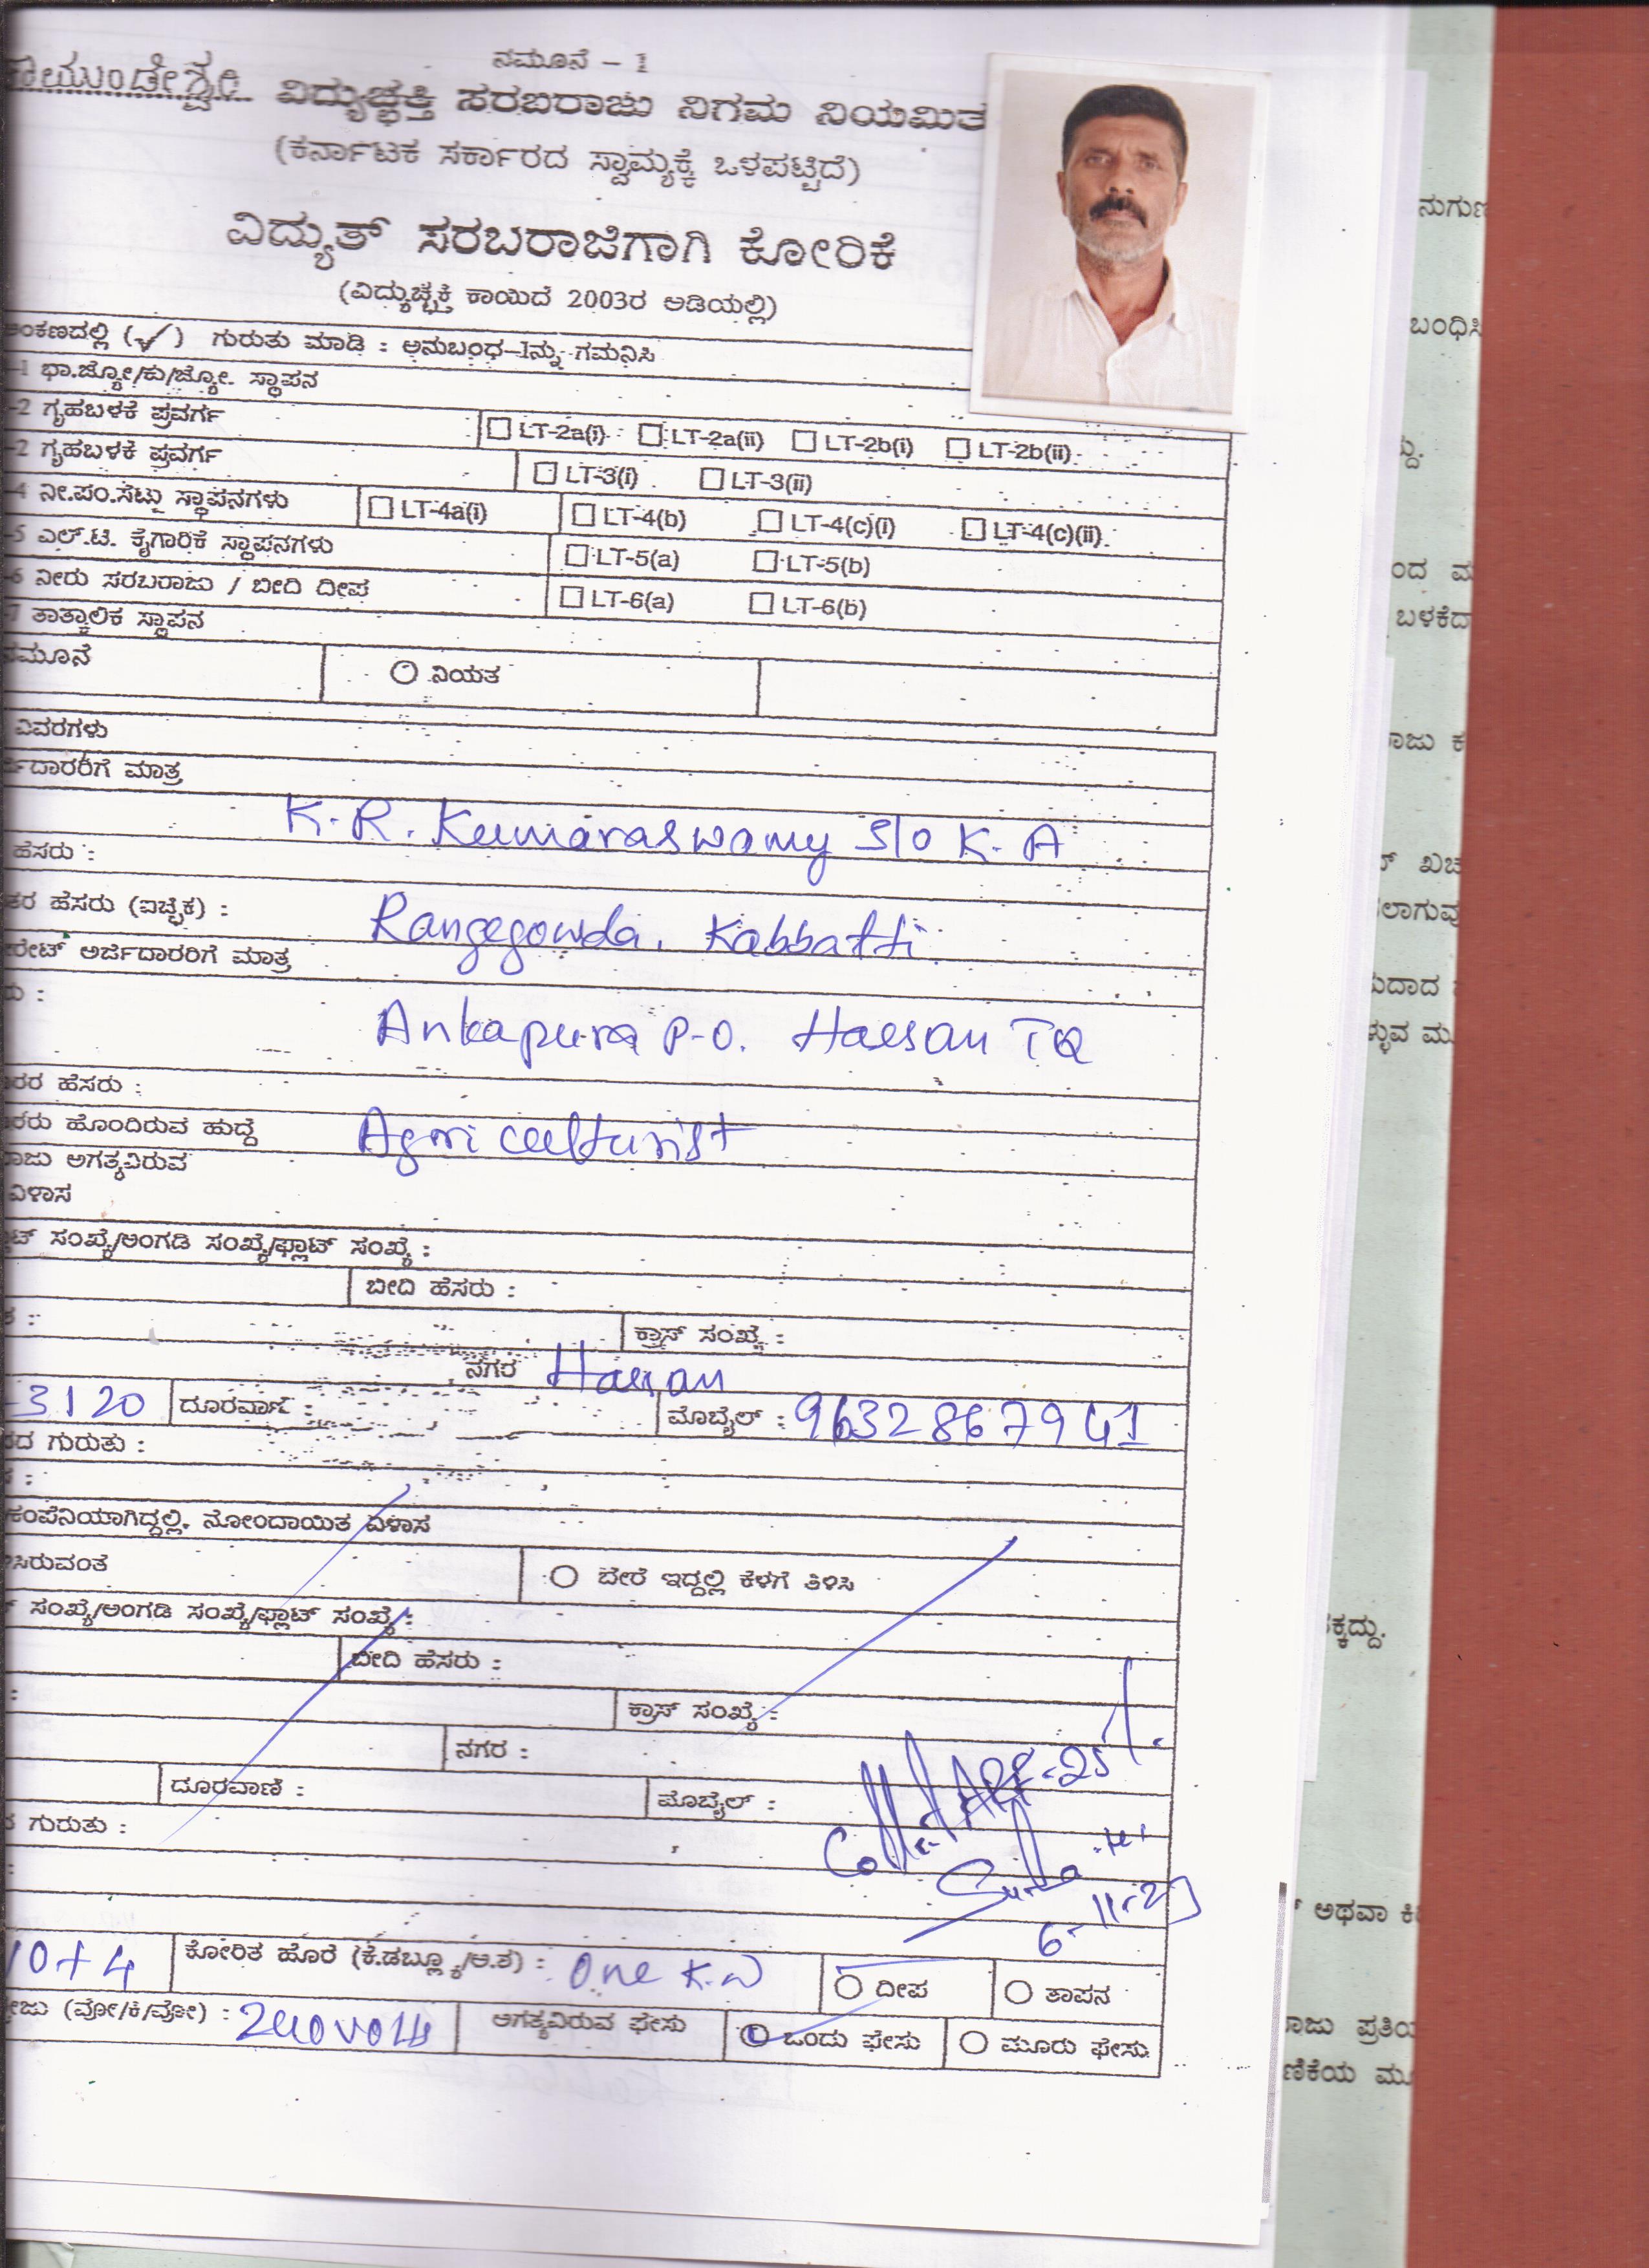 ನಮೂನೆ – 1
ವಿದ್ಯುಚ್ಛಕ್ತಿ ಸರಬರಾಜು ನಿಗಮ ನಿಯಮಿತ
(ಕರ್ನಾಟಕ ಸರ್ಕಾರದ ಸ್ವಾಮ್ಯಕ್ಕೆ ಒಳಪಟ್ಟಿದೆ)
ವಿದ್ಯುತ್ ಸರಬರಾಜಿಗಾಗಿ ಕೋರಿಕೆ
(ವಿದ್ಯುಚ್ಛಕ್ತಿ ಕಾಯಿದೆ 2003ರ ಅಡಿಯಲ್ಲಿ)
ಅಂಕಣದಲ್ಲಿ (✓) ಗುರುತು ಮಾಡಿ : ಅನುಬಂಧ–1ನ್ನು ಗಮನಿಸಿ
-1 ಭಾ.ಜ್ಯೋ/ಕು/ಜ್ಯೋ. ಸ್ಥಾಪನ
-2 ಗೃಹಬಳಕೆ ಪ್ರವರ್ಗ LT-2a(i) LT-2a(ii) LT-2b(i) LT-2b(ii)
-2 ಗೃಹಬಳಕೆ ಪ್ರವರ್ಗ LT-3(i) LT-3(ii)
-4 ನೀ.ಪಂ.ಸೆಟ್ಟು ಸ್ಥಾಪನಗಳು LT-4a(i) LT-4(b) LT-4(c)(i) LT-4(c)(ii)
-5 ಎಲ್.ಟಿ. ಕೈಗಾರಿಕೆ ಸ್ಥಾಪನಗಳು LT-5(a) LT-5(b)
-6 ನೀರು ಸರಬರಾಜು / ಬೀದಿ ದೀಪ LT-6(a) LT-6(b)
-7 ತಾತ್ಕಾಲಿಕ ಸ್ಥಾಪನ
ನಮೂನೆ ನಿಯತ
ವಿವರಗಳು
ರ್ಜಿದಾರರಿಗೆ ಮಾತ್ರ
K. R. Kumaraswamy S/o K. A
ಹೆಸರು :
ತರ ಹೆಸರು (ಐಚ್ಛಿಕ) : Rangegowda. Kabbatti
ರೇಟ್ ಅರ್ಜಿದಾರರಿಗೆ ಮಾತ್ರ
ರು : Ankapura P-O. Hassan TQ
ರರ ಹೆಸರು :
ಕರು ಹೊಂದಿರುವ ಹುದ್ದೆ Agriculturist
ರಾಜು ಅಗತ್ಯವಿರುವ
ವಿಳಾಸ
ಟ್ ಸಂಖ್ಯೆ/ಅಂಗಡಿ ಸಂಖ್ಯೆ/ಫ್ಲಾಟ್ ಸಂಖ್ಯೆ :
ಬೀದಿ ಹೆಸರು :
ಕ್ರಾಸ್ ಸಂಖ್ಯೆ :
ನಗರ Hassan
3120 ದೂರವಾಣಿ : ಮೊಬೈಲ್ : 9632867941
ದ ಗುರುತು :
ಕಂಪೆನಿಯಾಗಿದ್ದಲ್ಲಿ, ನೋಂದಾಯಿತ ವಿಳಾಸ
ಸಿರುವಂತೆ ಬೇರೆ ಇದ್ದಲ್ಲಿ ಕೆಳಗೆ ತಿಳಿಸಿ
ಸಂಖ್ಯೆ/ಅಂಗಡಿ ಸಂಖ್ಯೆ/ಫ್ಲಾಟ್ ಸಂಖ್ಯೆ :
ಬೀದಿ ಹೆಸರು :
ಕ್ರಾಸ್ ಸಂಖ್ಯೆ :
ನಗರ :
ದೂರವಾಣಿ : ಮೊಬೈಲ್ :
ಗುರುತು :
6-11-23
10+4 ಕೋರಿತ ಹೊರೆ (ಕೆ.ಡಬ್ಲ್ಯೂ/ಅ.ಶ) : One K.W ದೀಪ ತಾಪನ
ಜು (ವೋ/ಕಿ/ವೋ) : 240 volts ಅಗತ್ಯವಿರುವ ಫೇಸು ಒಂದು ಫೇಸು ಮೂರು ಫೇಸು